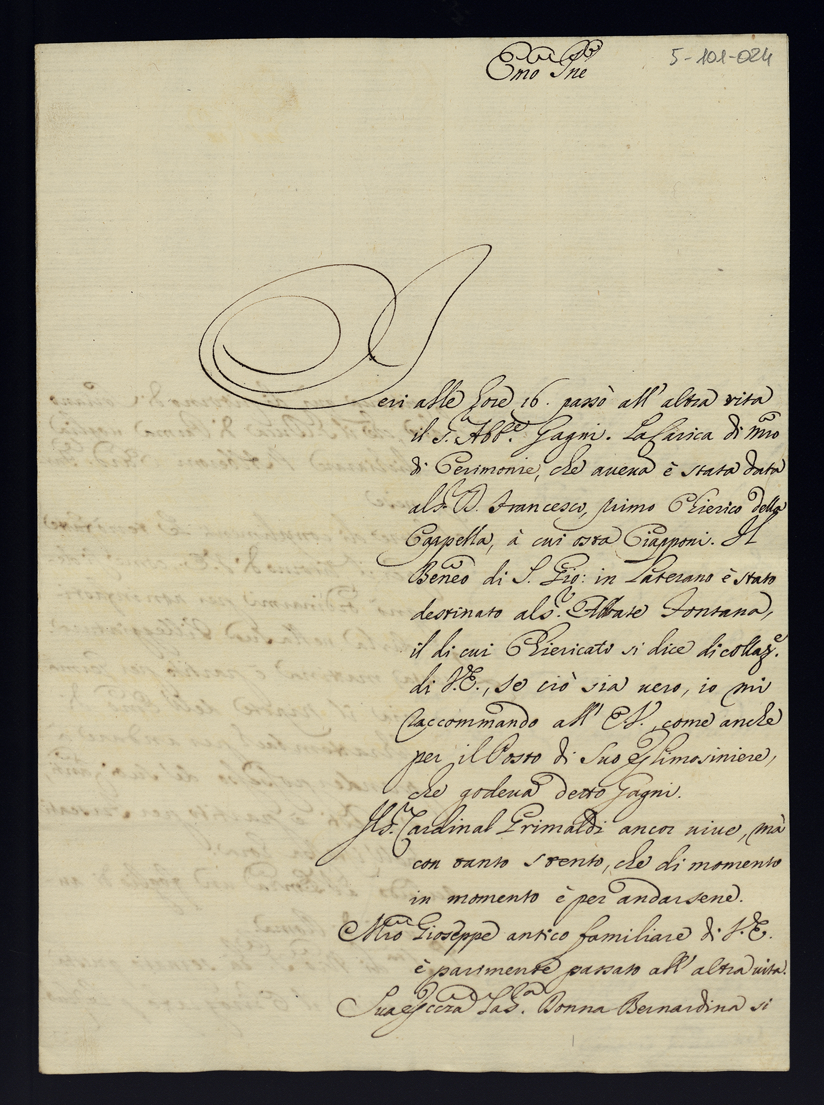 5-101-024
Emo Sne
Ieri alle hore 16. passò all' altra vita
il S. Abb.e Gagni. La Carica di Mro
di Cerimonie, che aveva è stata data
al S.r D. Francesco, primo Chierico della
Cappella, à cui osta Ciapponi. Il
Beneo di S. Gio: in Laterano è stato
destinato al S.r Abbate Fontana,
il di cui Chiericato si dice di collaz.e
di V.E., se ciò sia vero, io mi
raccommando all' E.V., come anche
per il Posto di Suo Elimosiniere,
che godeva detto Gagni.
Il S.r Cardinal Grimaldi ancor vive, mà
con tanto stento, che di momento
in momento è per andarsene.
Mro Gioseppe antico familiare di V.E.
è parimente passato all' altra vita.
Sua Eccza La S.a Donna Bernardina si